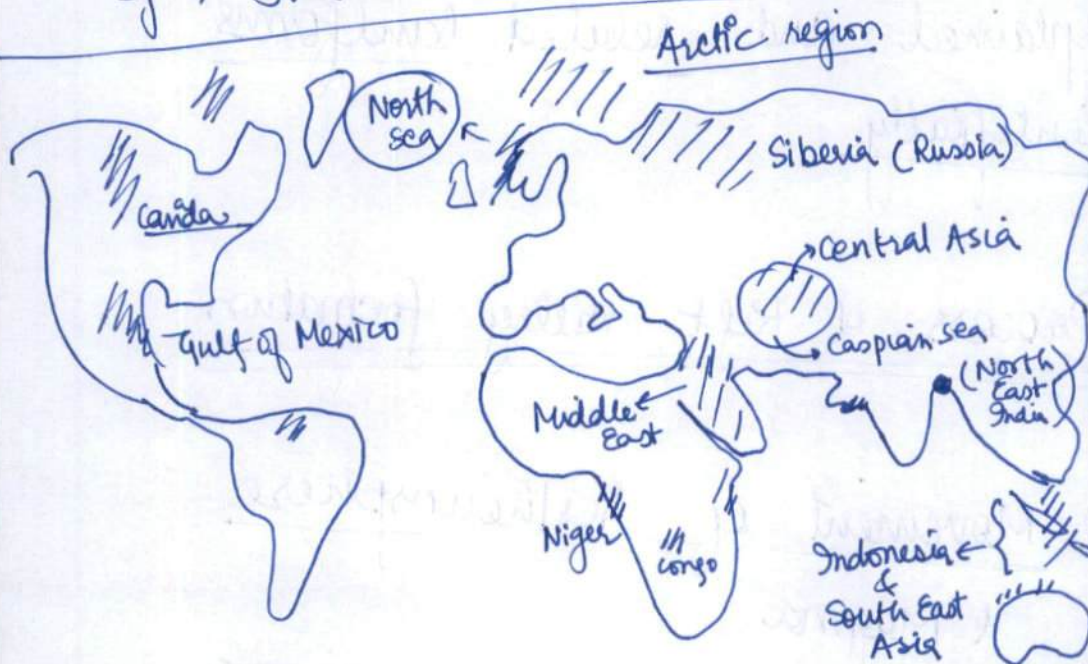 Arctic region
North
sea
Siberia (Russia)
Canada
Central Asia
Caspian sea
Gulf of Mexico
(North
East
India)
Middle
East
Niger
Congo
Indonesia
&
South East
Asia